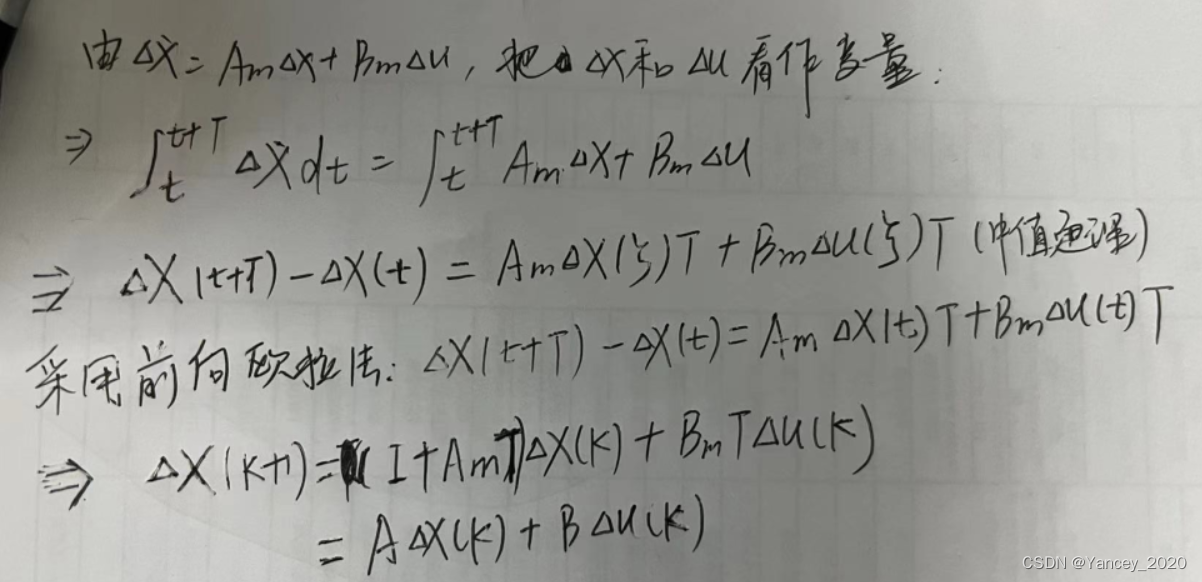 由ΔẊ = AmΔX + BmΔU, 把ΔX和ΔU看作变量:
⇒ ∫_t^{t+T} ΔẊ dt = ∫_t^{t+T} AmΔX + BmΔU
⇒ ΔX(t+T) - ΔX(t) = AmΔX(ξ)T + BmΔU(ξ)T (中值定理)
采用前向欧拉法: ΔX(t+T) - ΔX(t) = AmΔX(t)T + BmΔU(t)T
⇒ ΔX(k+1) = (I + AmT)ΔX(k) + BmTΔU(k)
= AΔX(k) + BΔU(k)
CSDN @Yancey_2020